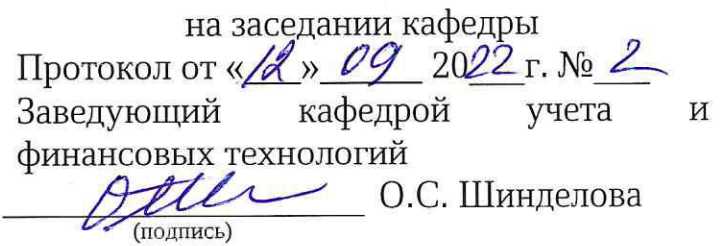 на заседании кафедры
Протокол от «12» 09 2022 г. № 2
Заведующий кафедрой учета и
финансовых технологий
О.С. Шинделова
(подпись)